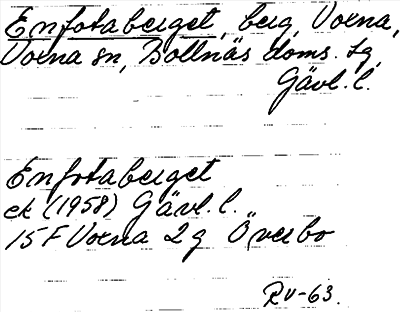 Enfotaberget, berg, Voxna,
Voxna sn, Bollnäs doms. tg,
Gävl. l.
Enfotaberget
ek (1958) Gävl. l.
15 F Voxna 2 g Överbo
RV-63.